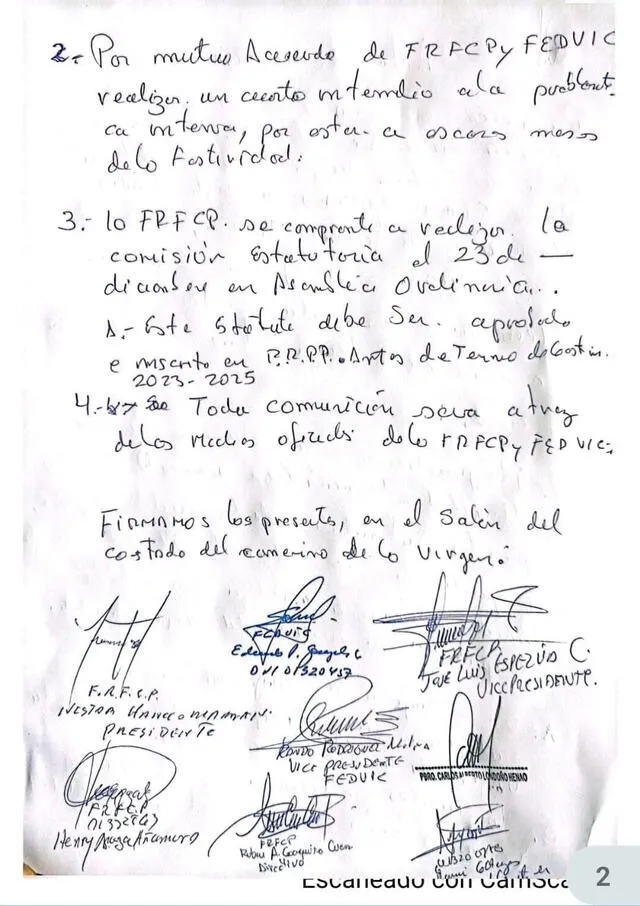 2.- Por mutuo Acuerdo de FRFCP y FEDVIC
realizar un cuarto intermdio a la problemati
ca interna, por estar a escasos meses
de la Festividad.
3.- la FRFCP. se compromte a realizar la
comisión Estatutoria el 23 de —
diciembre en Asamblea Ordinaria..
A.- Este Statute debe Ser. aprobado
e inscrito en RR.PP. Antes de Termo de Gestin.
2023-2025
4.- Toda comunicción sera atraz
de los Medios oficials de la FRFCP y FEDVIC,
FIRMAMOS los presents, en el Salón del
costado del camerino de la Virgen.
FEDVIC
Eduardo P. Gonzales C
DNI 01320437
FRFCP
JOSÉ LUIS ESPEZÚA C.
VICEPRESIDENTE.
F.R.F.C.P.
NESTOR MAMANI
PRESIDENTE
RODRIGUEZ Molina
VICE PRESIDENTE
FEDVIC
PBRO. CARLOS ALBERTO LONDOÑO HENAO
FRFCP
01332763
Henry Añamuro
FRFCP
Ruben A. Coaquira
Directivo
Escaneado con CamSca
2